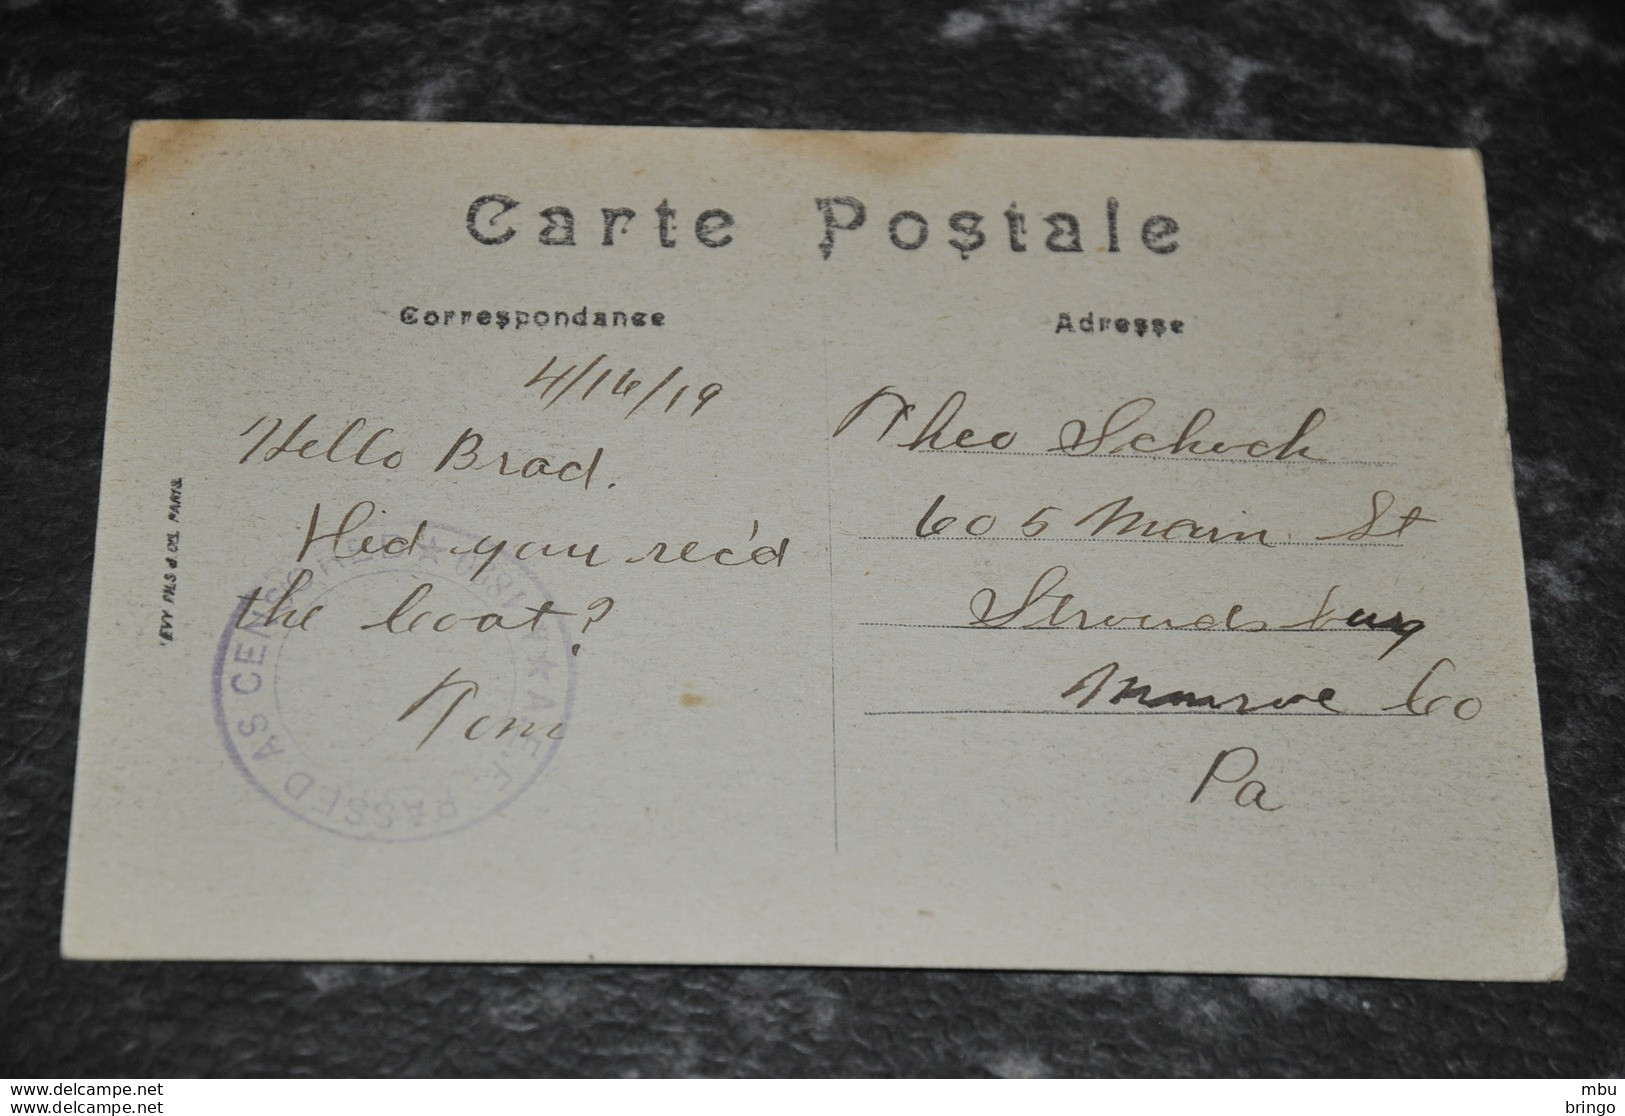 Carte Postale
Correspondance
Adresse
4/16/19
Hello Brad.
Did you rec'd
the boat?
Tom
Theo Schoch
605 Main St
Stroudsburg
Monroe Co
Pa
PASSED AS CENSORED ★ 1899 ★ A.E.F.
LEVY FILS & CIE. PARIS.
www.delcampe.net
www.delcampe.net
mbu
bringo